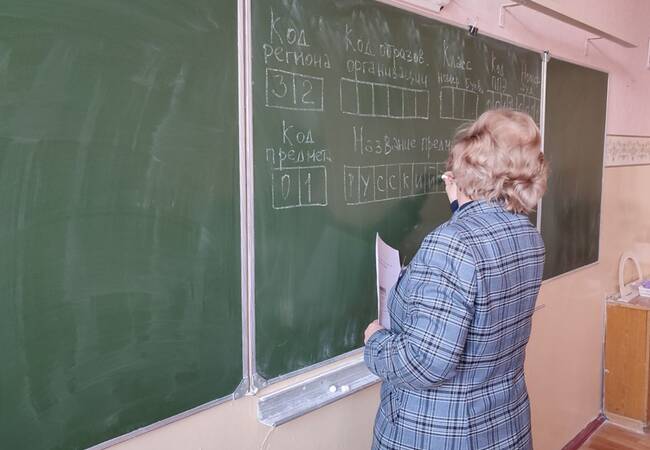 Код региона Код образов. организации Класс номер буква Код ППЭ
32
Код предмет Название предм
01 РУССКИЙ